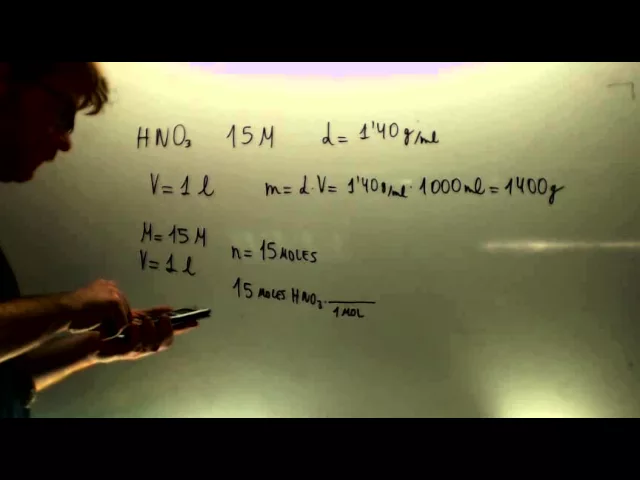 HNO₃ 15M d= 1'40g/ml
V=1 l m= d·V= 1'40g/ml · 1000ml = 1400g
M=15M
V=1 l n=15MOLES
15 MOLES HNO₃ · ___/1 MOL